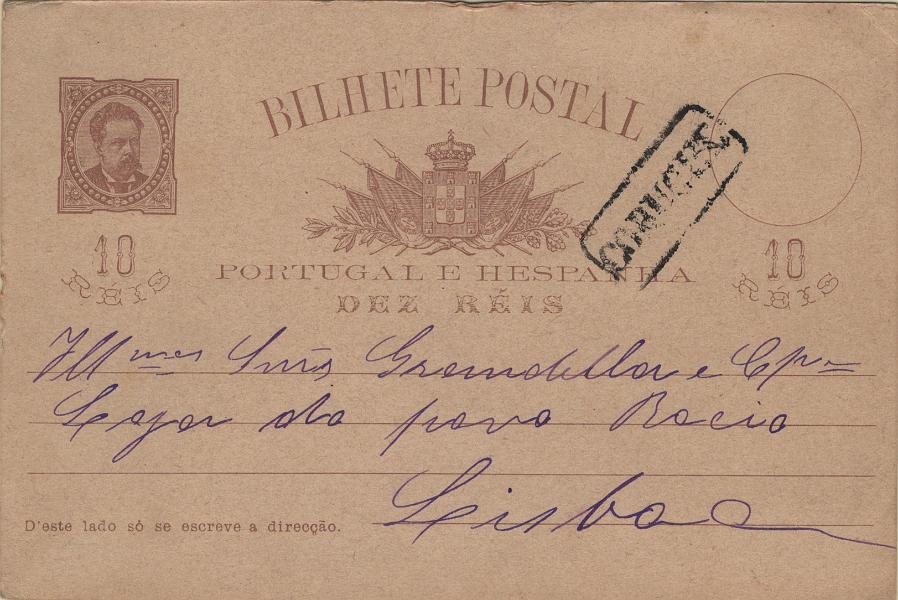 BILHETE POSTAL
CORUCHE
10
RÉIS
10
RÉIS
PORTUGAL E HESPANHA
DEZ RÉIS
Illmos Snrs Grandella e Cpa
Lojas do povo Rocio
Lisboa
D'este lado só se escreve a direcção.